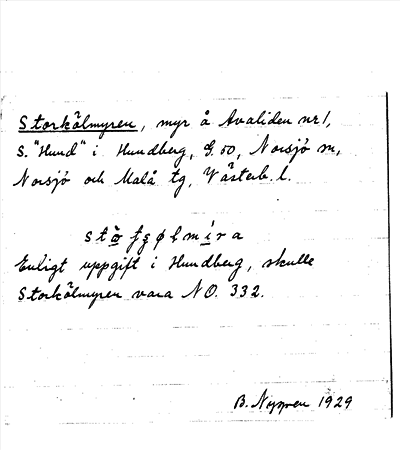 Storkälmyren, myr å Avaliden nr 1,
S. "Hund" i Hundberg, G. 50, Norsjö sn,
Norsjö och Malå tg, Västerb. l.
Enligt uppgift i Hundberg, skulle
Storkälmyren vara NO. 332.
B. Nygren 1929